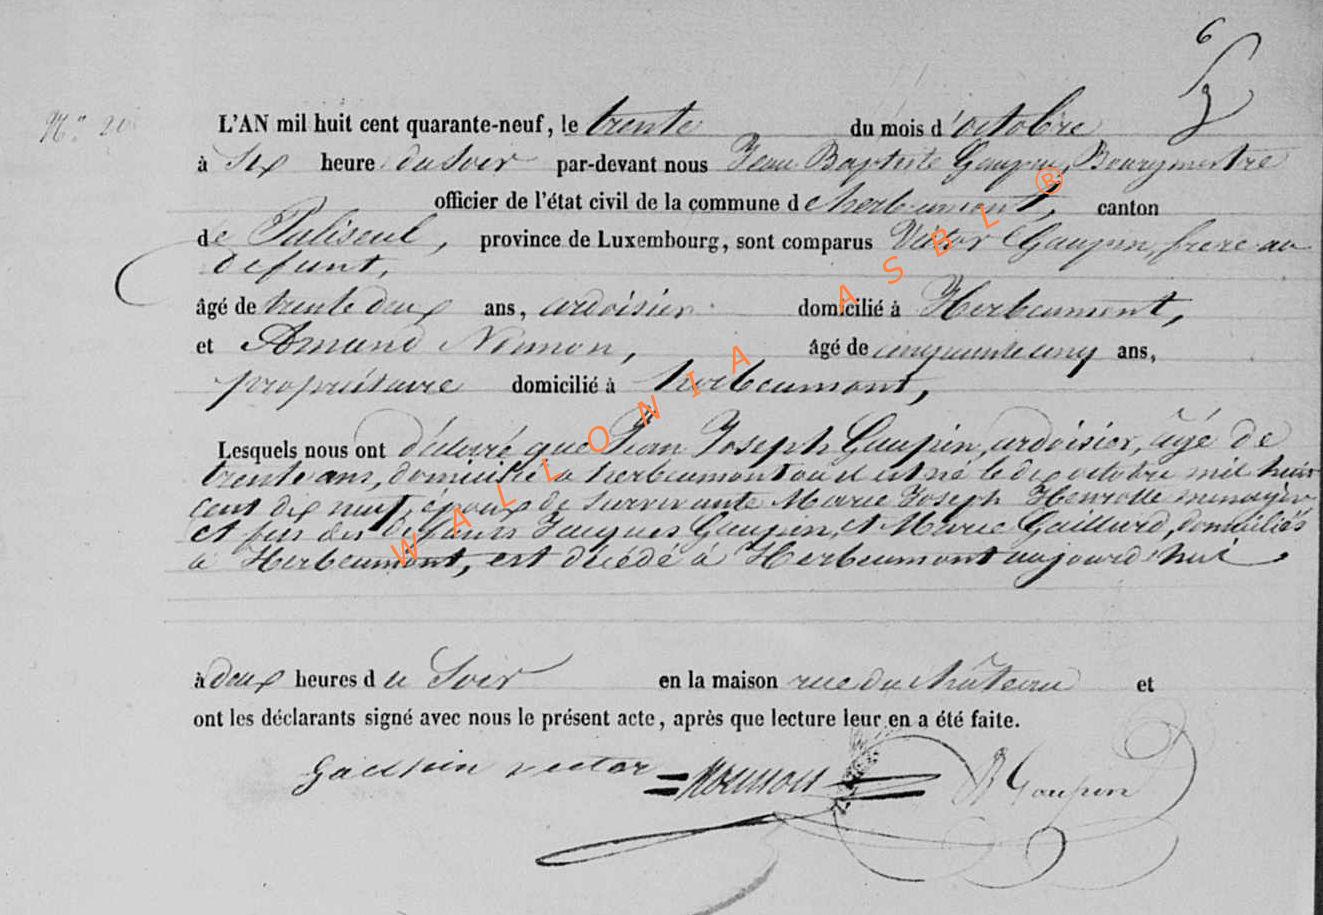 6
N° 20
L'AN mil huit cent quarante-neuf, le trente du mois d'octobre
à Six heure du Soir par-devant nous Jean Baptiste Gaupin, Bourgmestre
officier de l'état civil de la commune d'herbeumont, canton
de Paliseul, province de Luxembourg, sont comparus Victor Gaupin, frere au
défunt,
âgé de trente deux ans, ardoisier domicilié à Herbeumont,
et Amand Nemon, âgé de cinquante cinq ans,
propriétaire domicilié à herbeumont,
Lesquels nous ont déclaré que Jean Joseph Gaupin, ardoisier, âgé de
trente ans, domicilié a herbeumont où il est né le dix octobre mil huit
cent dix neuf, époux de survivante Marie Joseph Henrotte menagère
et fils des défunts Jacques Gaupin, et Marie Gaillard, domiciliés
à Herbeumont, est décédé a Herbeumont aujourd'hui
à deux heures du Soir en la maison rue du Château et
ont les déclarants signé avec nous le présent acte, après que lecture leur en a été faite.
gaupin victor JB Gaupin
WALLONIA ASBL ®